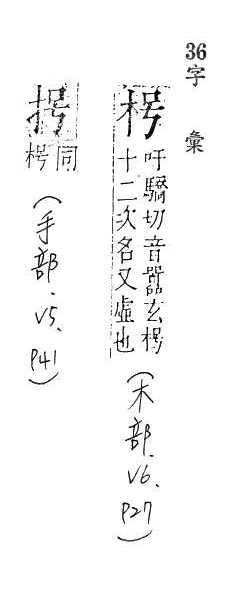 36字彙
枵 吁驕切音嚻玄枵
十二次名又虛也
(木部.V6.P27)
摀 同
枵
(手部.V5.P41)